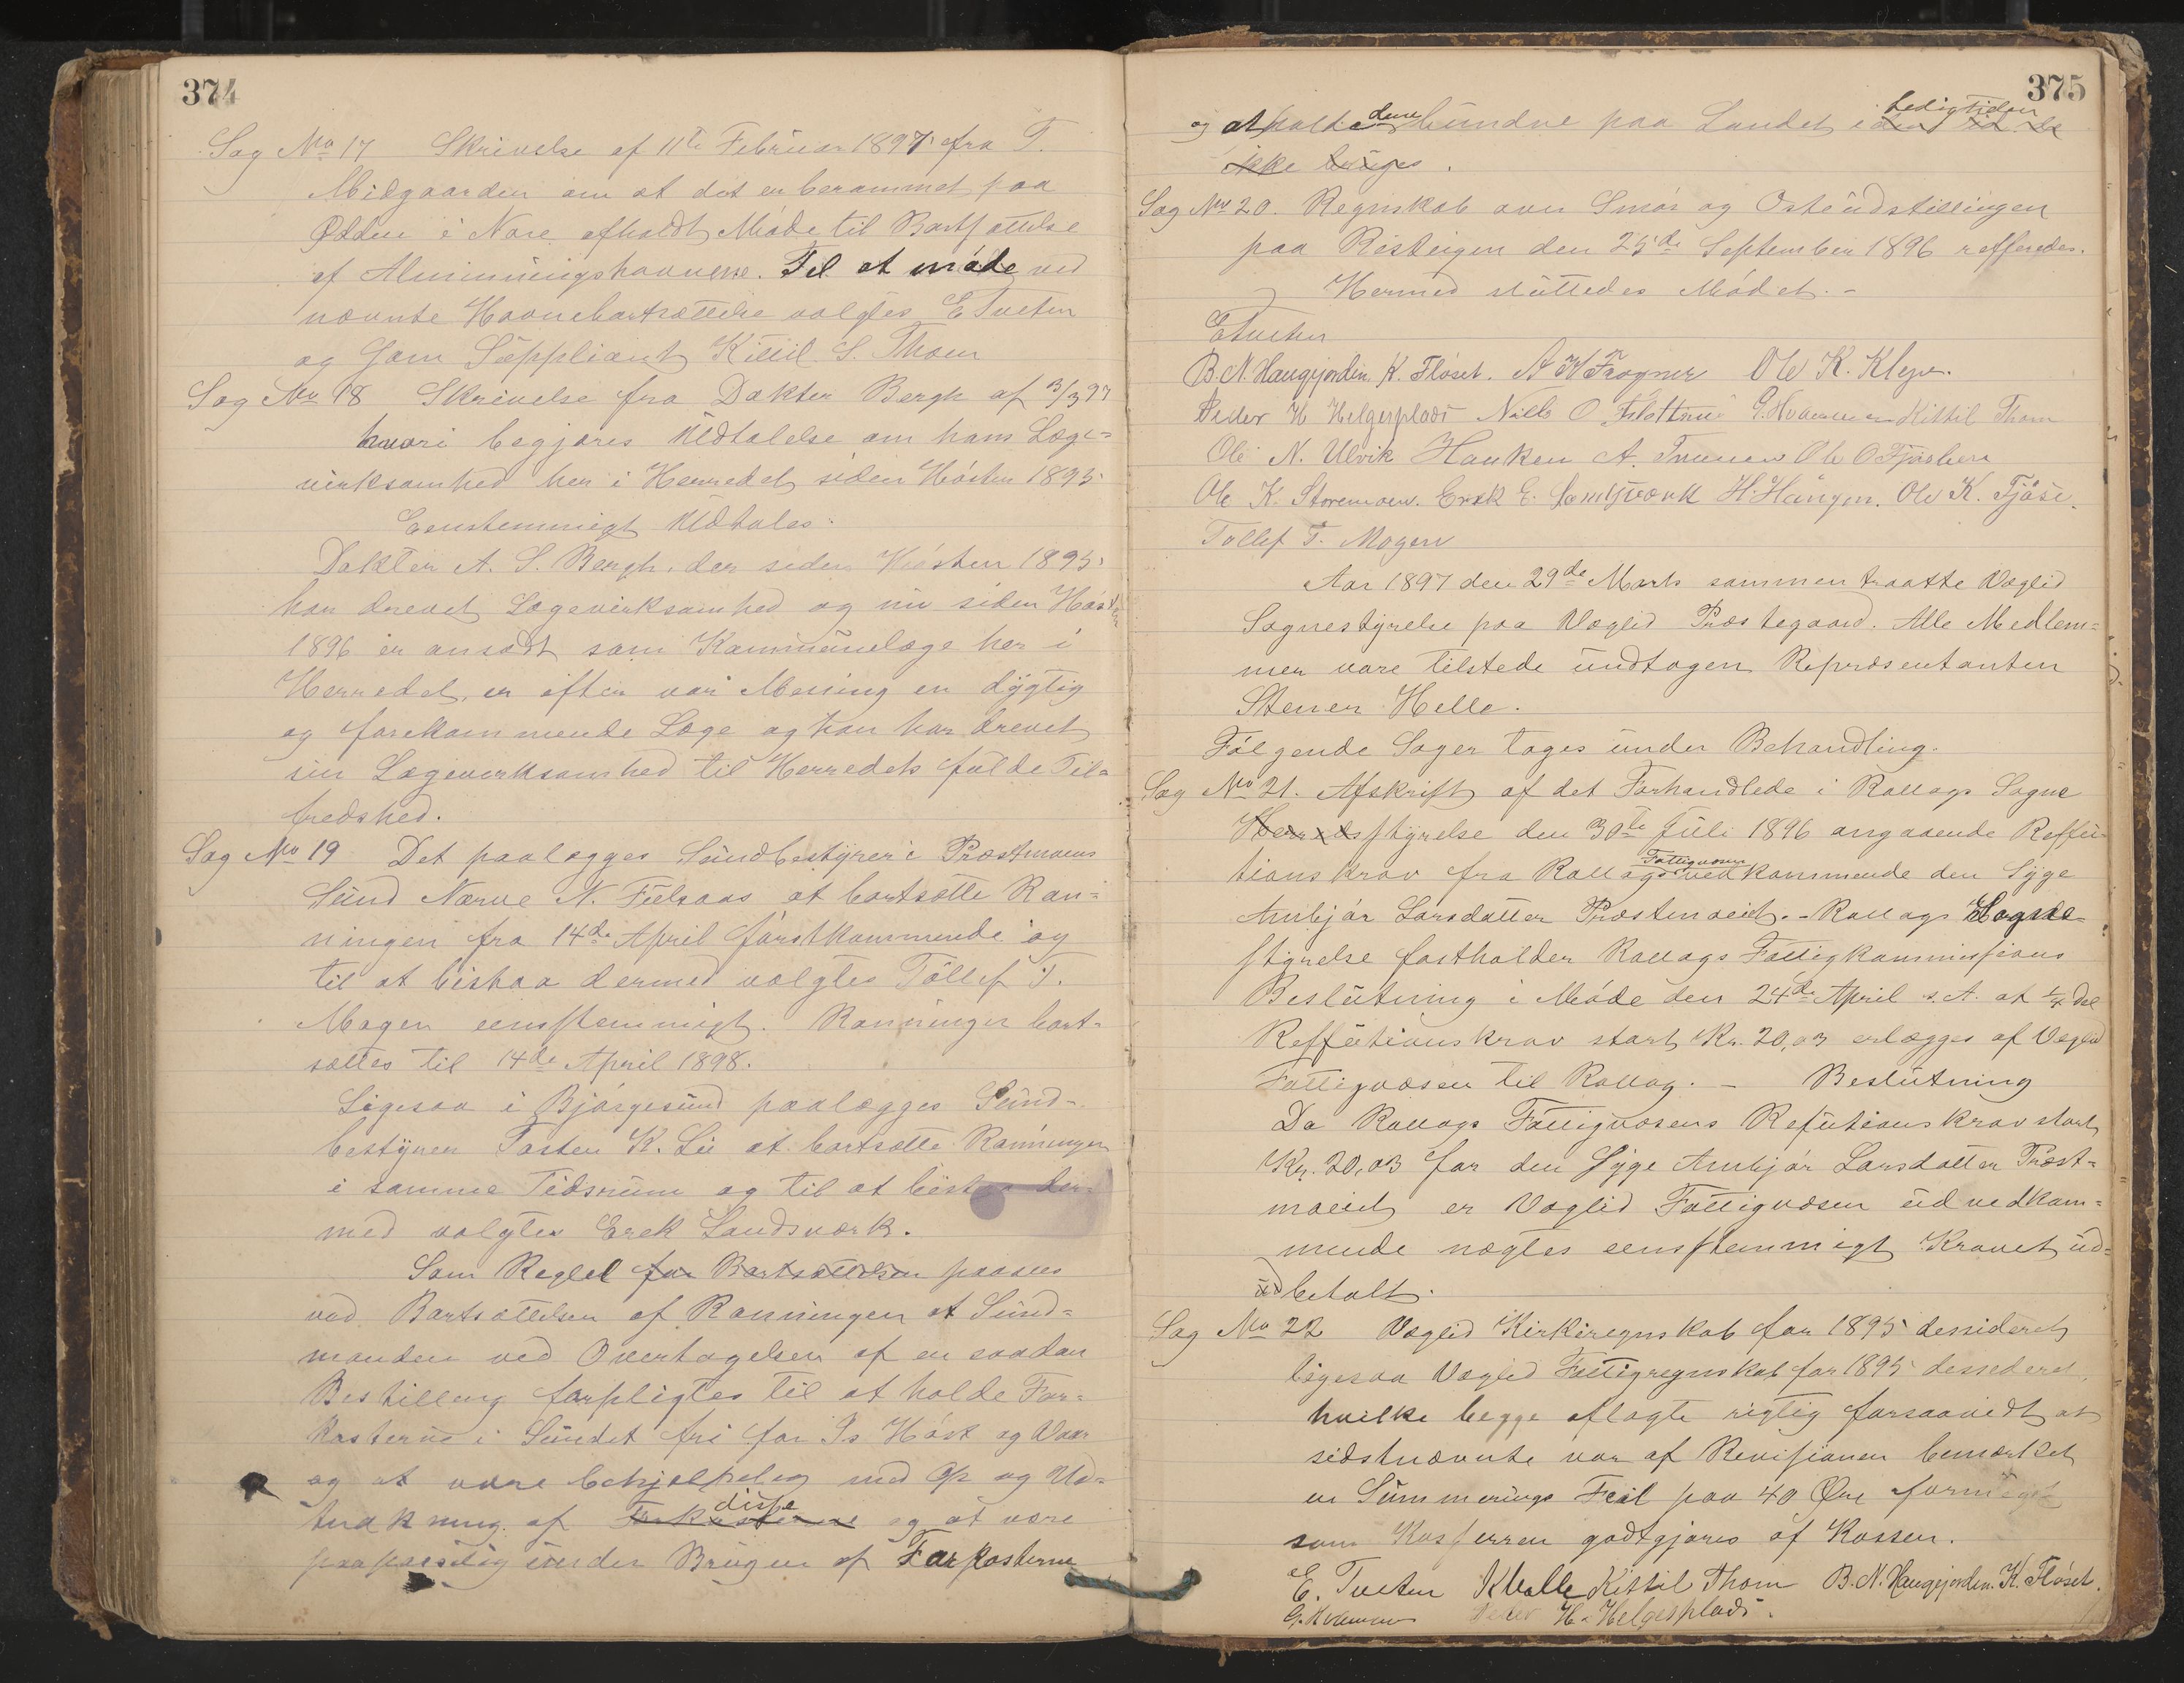 374
Sag No 17 Skrivelse af 11te Februar 1897 fra T.
Midgaarden om at det er berammet paa
Ødden i Nore afholdt Møde til Bortsættelse
af Almindingshavnene. Til at møde ved
nævnte Havnebortsættelse valgtes E Tveten
og som Suppliant Kittil S. Thom
Sag No 18 Skrivelse fra Dokter Bergh af 3/3 97
hvori begjæres Udtalelse om hans Læge-
virksomhed her i Herredet siden Høsten 1895
Eenstemmigt Udtales:
Dokter A. S. Bergh, der siden Høsten 1895
har drevet Lægevirksomhed og nu siden Høsten
1896 er ansædt som Kommunelæge her i
Herredet, er efter vor Mening en dygtig
og forekommende Læge og han har drevet
sin Lægevirksomhed til Herredets fulde Til-
fredshed.
Sag No 19 Det paalægges Sundbestyrer i Præstmoens
Sund Narve N. Fulsaas at bortsætte Ran-
ningen fra 14de April førstkommende og
til at bistaa dermed valgtes Tollef T.
Mogen eenstemmigt. Ranningen bort-
sættes til 14de April 1898.
Ligesaa i Bjørgesund paalægges Sund-
bestyrer Tosten K. Lii at bortsætte Ranningen
i samme Tidsrum og til at bistaa der-
med valgtes Erek Landsværk.
Som Reglel for Bortsættelsen paasees
ved Bortsættelsen af Ranningen at Sund-
manden ved Overtagelsen af en saadan
Bestilling forpligtes til at holde Far-
kosterne i Sundet fri for Is Høst og Vaar
og at være behjelpelig med Op og Ud-
disse
trækning af Farkosterne og at være
paapasselig under Brugen af Farkosterne
375
dem ledig tiden
og at holde bundne paa Landet i den tid de
ikke bruges.
Sag No 20. Regnskab over Smør og Osteudstillingen
paa Røsteigen den 25de September 1896 refferedes.
Hermed sluttedes Mødet. -
E Tveten
B. N. Haugejorden. K. Fløset. A K Frogner Ole K. Klepe.
Peder H Helgesplads Niels O G. Kittil Thom
Ole N. Ulvik Hanken A. Ole O
Ole K. Storemoen. Erek E. Landsværk H. Haugen. Ole K. Tjøse.
Tollef T. Mogen
Aar 1897 den 29de Marts sammentraatte Væglid
Sognestyrelse paa Væglid Præstegaard. Alle Medlem-
mer vare tilstede undtagen Repræsentanten
Stener Helle.
Følgende Sager tages under Behandling.
Sag No 21. Afskrift af det Forhandlede i Rollags Sogne
Herredsstyrelse den 30te Juli 1896 angaaende Reffu-
Fattigvæsen
tionskrav fra Rollags vedkommende den Syge
Ambjør Larsdatter Præstmoeid. - Rollags Sogne-
styrelse fastholder Rollags Fattigkommissions
Beslutning i Møde den 24de April s. A. at 1/4 Del
Reffutionskrav stort Kr. 20,03 erlægges af Væglid
Fattigvæsen til Rollag. - Beslutning
Da Rollags Fattigvæsens Refutionskrav stort
Kr. 20,03 for den Syge Ambjør Larsdatter Præst-
moeid er Væglid Fattigvæsen uvedkom-
mende nægtes eenstemmigt Kravet ud-
ud betalt.
Sag No 22 Væglid Kirkeregnskab for 1895 dessideret
ligesaa Væglid Fattigregnskab for 1895 dessederet,
hvilke begge aflagte rigtig forsaavidt at
sidstnævnte var af Revisionen bemærket
en Summerings Feil paa 40 Øre
som Kasserren godtgjøres af Kassen.
E. Tveten K Valle Kittil Thom B. N. Haugejorden. K. Fløset.
G. Peder H. Helgesplads.